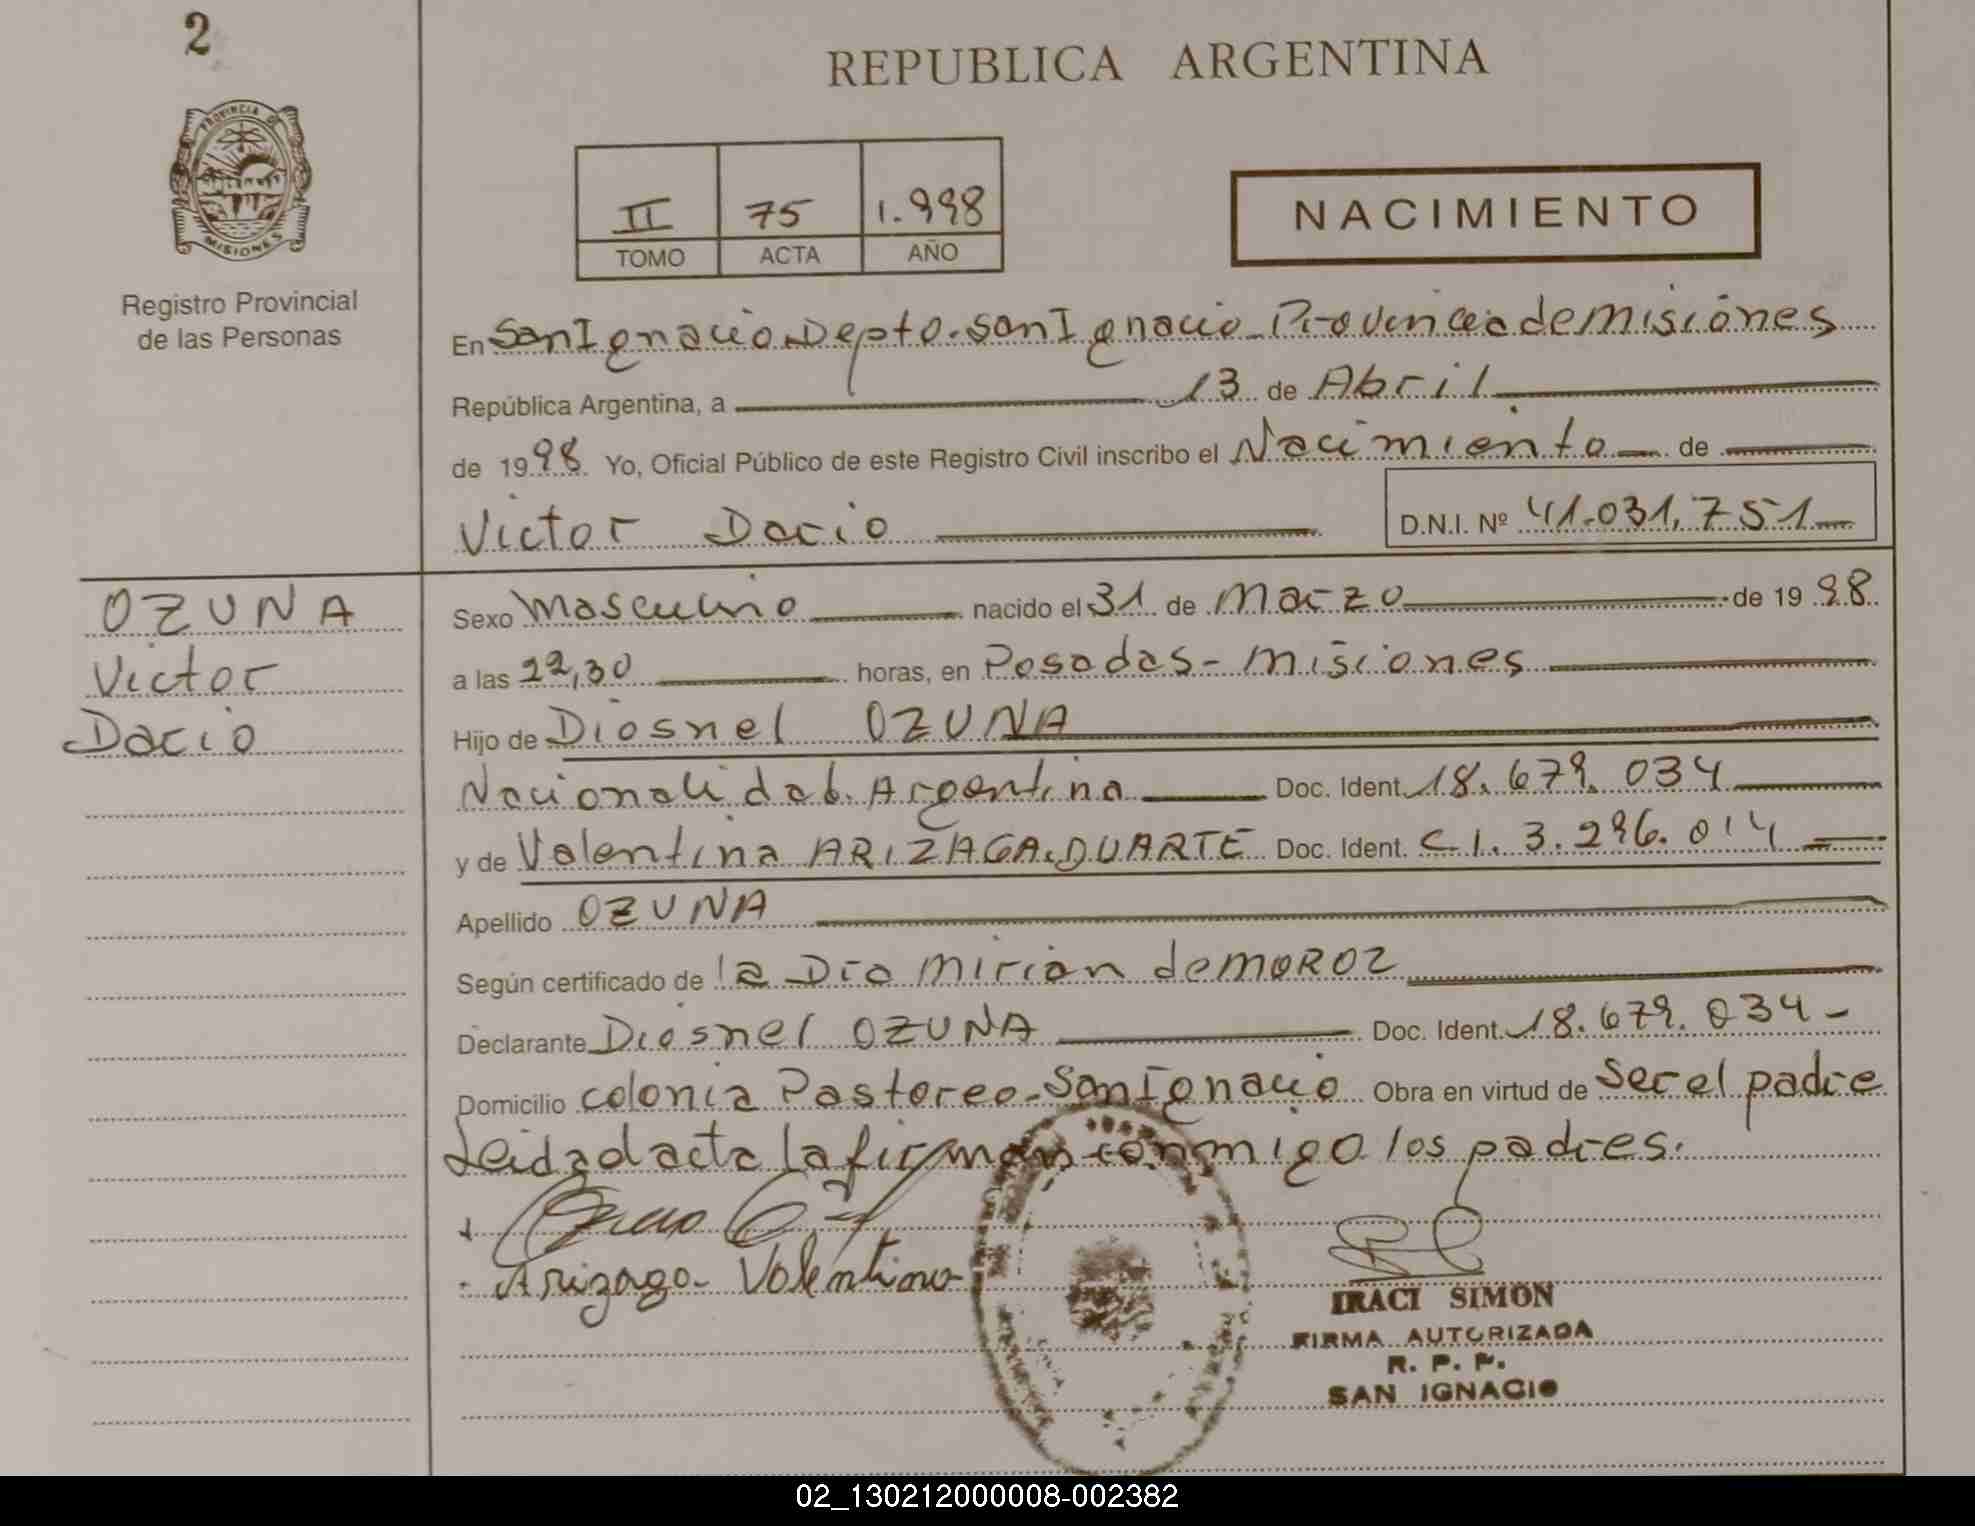 2
REPUBLICA ARGENTINA
PROVINCIA DE
MISIONES
Registro Provincial
de las Personas
II 75 1.998
TOMO ACTA AÑO
NACIMIENTO
En San Ignacio Depto. San Ignacio Provincia de Misiones
República Argentina, a 13 de Abril
de 1998 Yo, Oficial Público de este Registro Civil inscribo el Nacimiento de
Victor Dacio D.N.I. Nº 41.031.751
OZUNA
Victor
Dacio
Sexo Masculino nacido el 31 de Marzo de 1998
a las 22,30 horas, en Posadas - Misiones
Hijo de Diosnel OZUNA
Nacionalidad. Argentina Doc. Ident. 18.679.034
y de Valentina ARIZAGA DUARTE Doc. Ident. C.I. 3.296.014
Apellido OZUNA
Según certificado de la Dra Mirian de MOROZ
Declarante Diosnel OZUNA Doc. Ident. 18.679.034-
Domicilio Colonia Pastoreo - San Ignacio Obra en virtud de Ser el padre
Leida el acta la firman conmigo los padres.
Arizaga Valentina
IRACI SIMON
FIRMA AUTORIZADA
R. P. P.
SAN IGNACIO
02_130212000008-002382